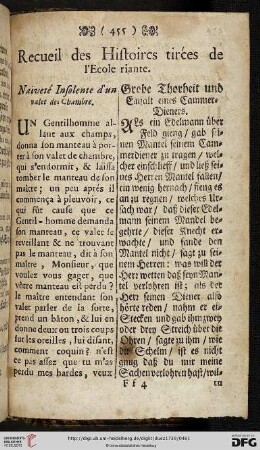 ( 455 )
Recueil des Histoires tirées de
l'Ecole riante.
Naiveté Insolente d'un
valet des Chambre.
UN Gentilhomme al-
laut aux champs,
donna son manteau à por-
ter à son valet de chambre,
qui s'endormit, & laissa
tomber le manteau de son
maitre; un peu aprés il
commença à pleuvoir, ce
qui fit cause que ce
Gentil-homme demanda
son manteau, ce valet se
reveillant & ne trouvant
pas le manteau, dit à son
maitre, Monsieur, que
voulez vous gager, que
vôtre manteau est perdu?
le maitre entendant son
valet parler de la sorte,
prend un bâton, & lui en
donne deux ou trois coups
sur les oreilles, lui disant,
comment coquin? n'est
ce pas assez que tu m'as
perdu mes hardes, veux
Grobe Thorheit und
Einfalt eines Cammer-
Dieners.
ALs ein Edelmann über
Feld gieng/ gab er
seinen Mantel seinem Cam-
merdiener zu tragen/ wel-
cher einschlieff/ und ließ sei-
nes Herren Mantel fallen/
ein wenig hernach/ fieng es
an zu regnen/ welches Ur-
sach war/ daß dieser Edel-
mann seinem Mantel be-
gehrte/ dieser Knecht er-
wachte/ und fande den
Mantel nicht/ sagt zu sei-
nem Herren: was will der
Herr wetten daß seyn Man-
tel verlohren ist; als der
Herr seinen Diener also
hörte reden/ nahm er ein
Stecken und gab ihm zwey
oder drey Streich über die
Ohren/ sagte zu ihm/ wie
Schelm/ ist es nicht
gnug daß du mir meine
Sachen verlohren hast/ wilt
Ff 4
tu
http://digi.ub.uni-heidelberg.de/diglit/duez1739/0461
© Universitätsbibliothek Heidelberg
gefördert durch die
DFG